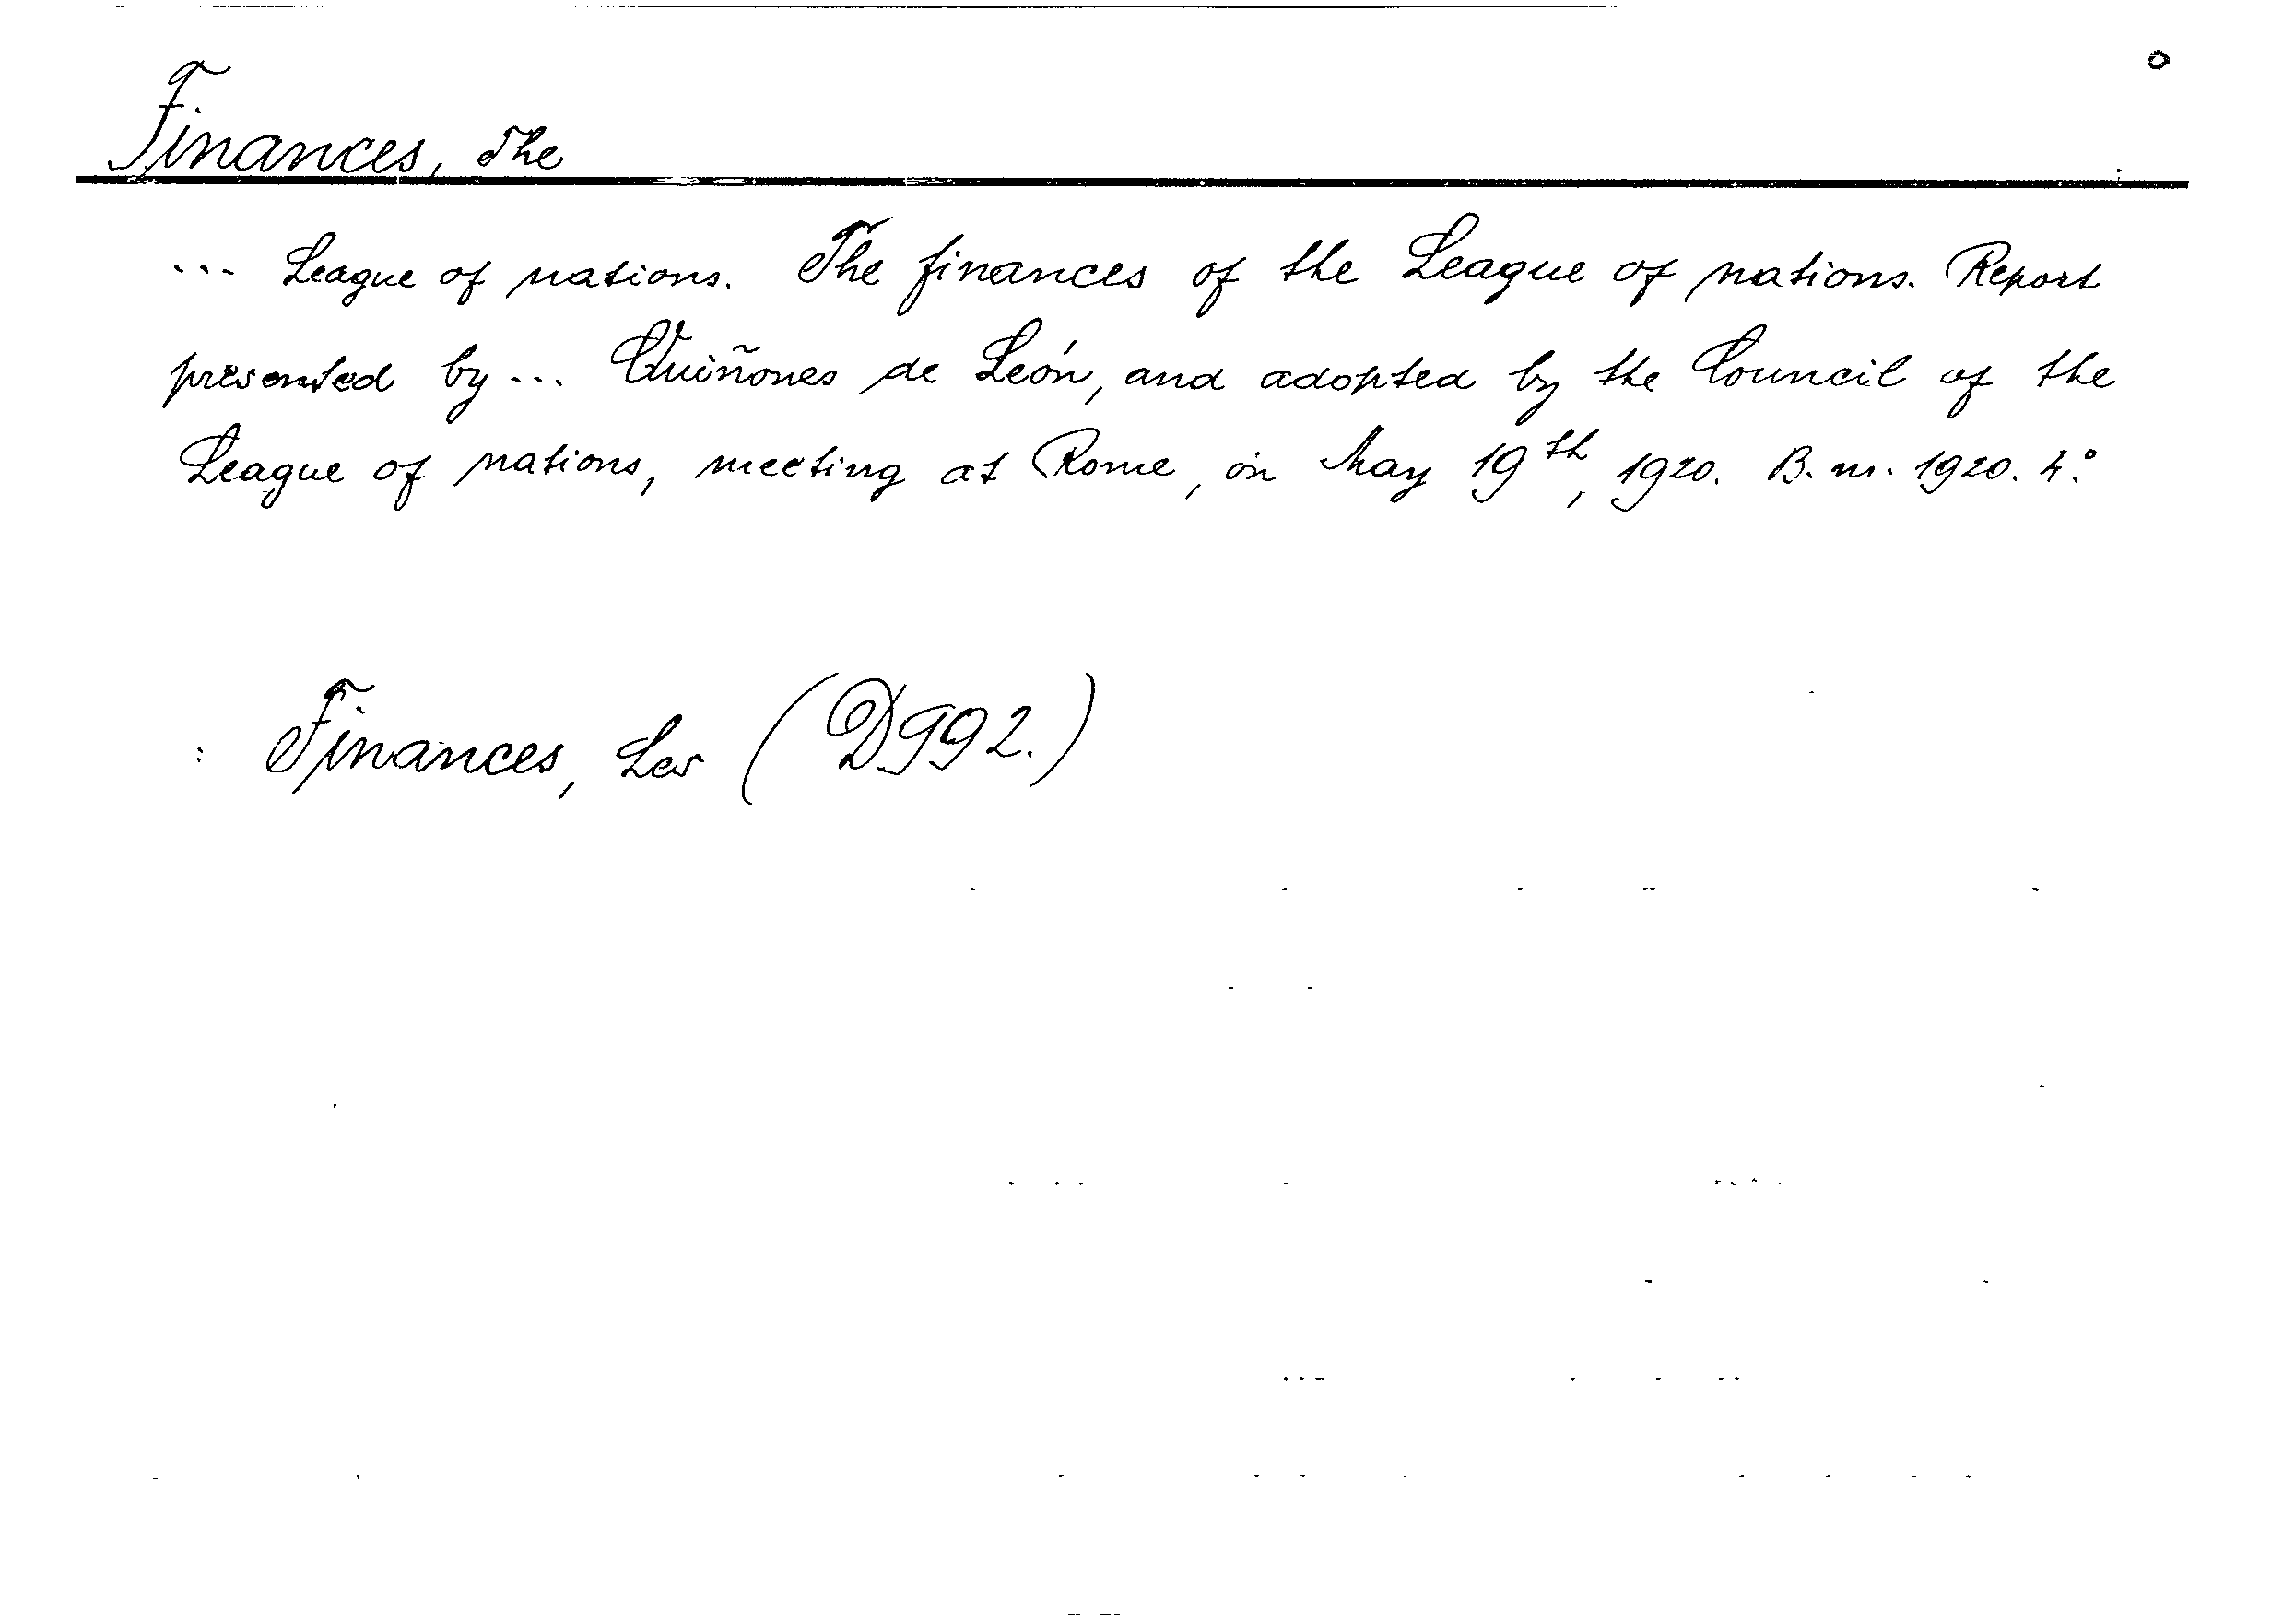 Finances, The
... League of nations. The finances of the League of nations. Report
presented by ... Quiñones de León, and adopted by the Council of the
League of nations, meeting at Rome, on May 19th, 1920. B. m. 1920. 4:o
: Finances, Les (D992.)